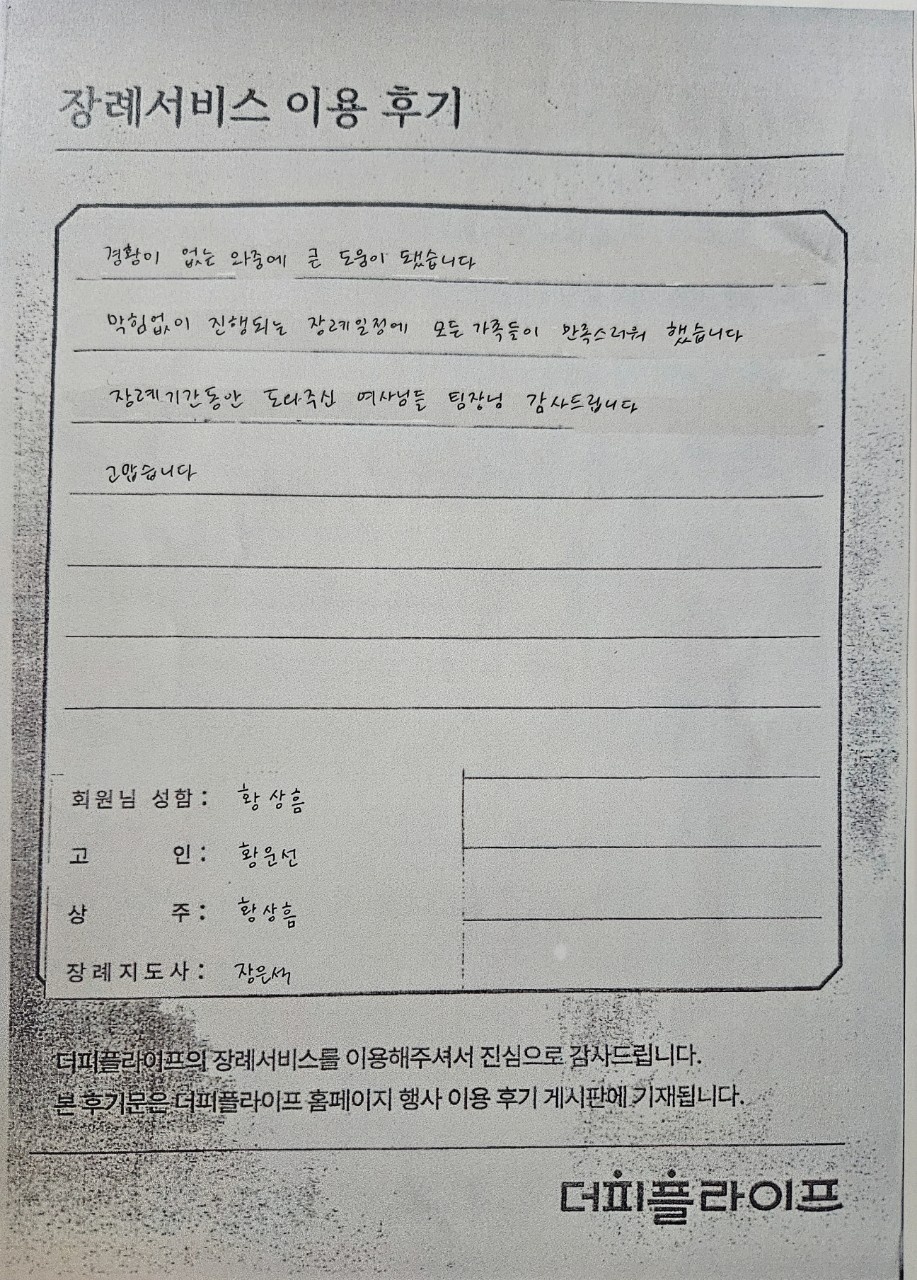 장례서비스 이용 후기
경황이 없는 와중에 큰 도움이 됐습니다
막힘없이 진행되는 장례일정에 모든 가족들이 만족스러워 했습니다
장례기간동안 도와주신 여사님들 팀장님 감사드립니다
고맙습니다
회원님 성함 : 황상흠
고 인 : 황운선
상 주 : 황상흠
장례지도사 : 장은석
더피플라이프의 장례서비스를 이용해주셔서 진심으로 감사드립니다.
본 후기문은 더피플라이프 홈페이지 행사 이용 후기 게시판에 기재됩니다.
더피플라이프